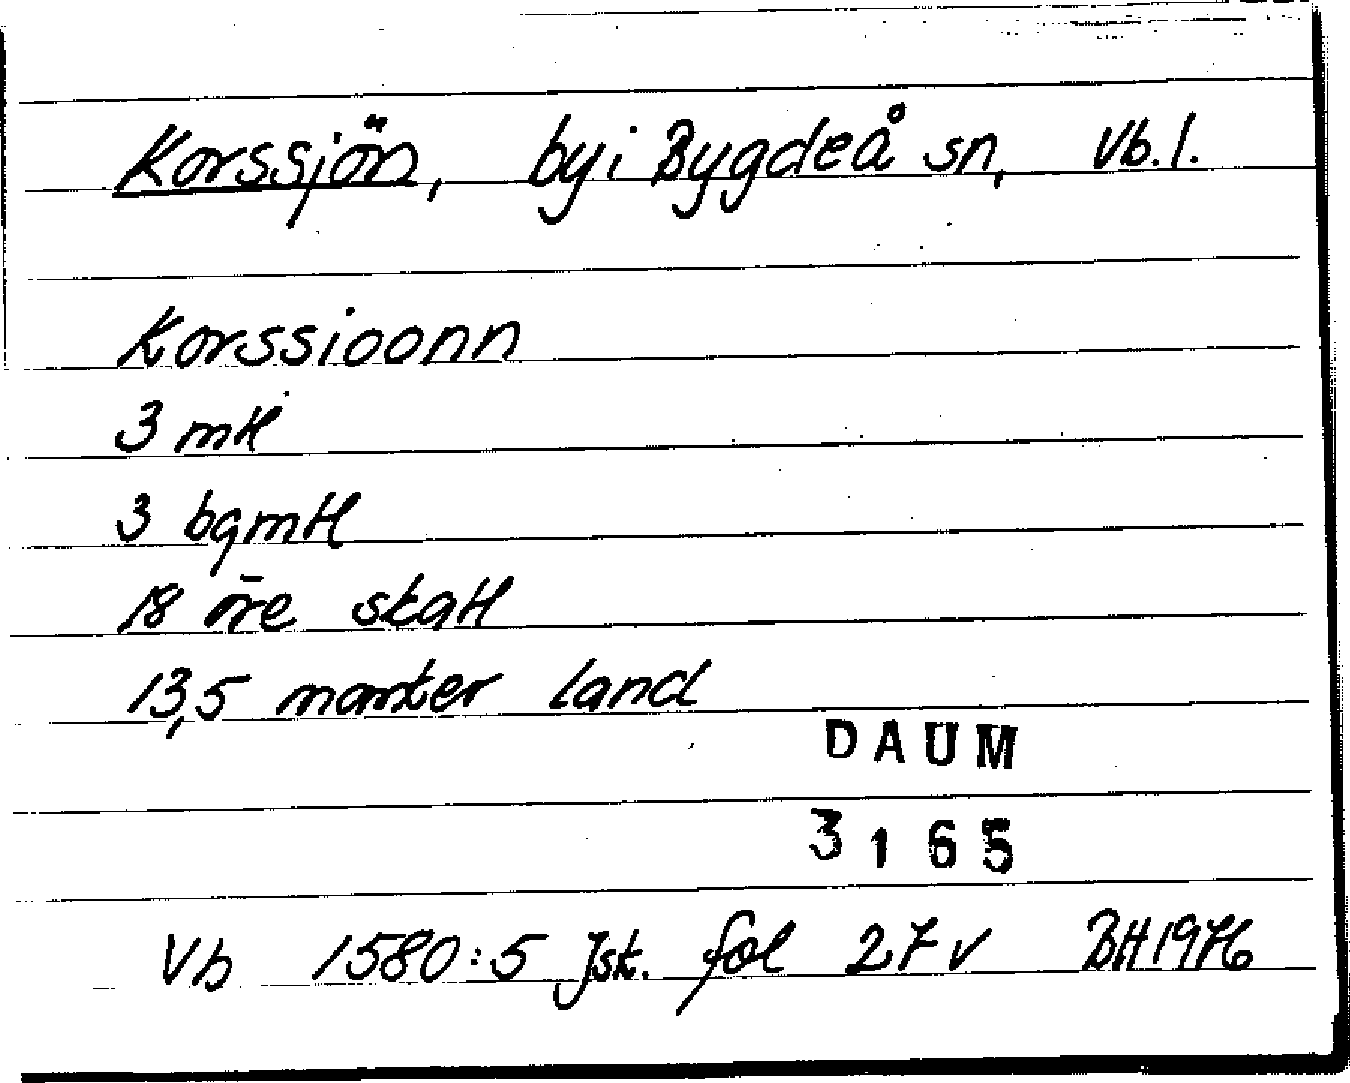 Korssjön, by i Bygdeå sn, Vb. l.
Korssioonn
3 mtl
3 bgmtl
18 öre skatt
13,5 manter land
DAUM
3165
Vb 1580:5 Jsk. fol 27 v BH 1976